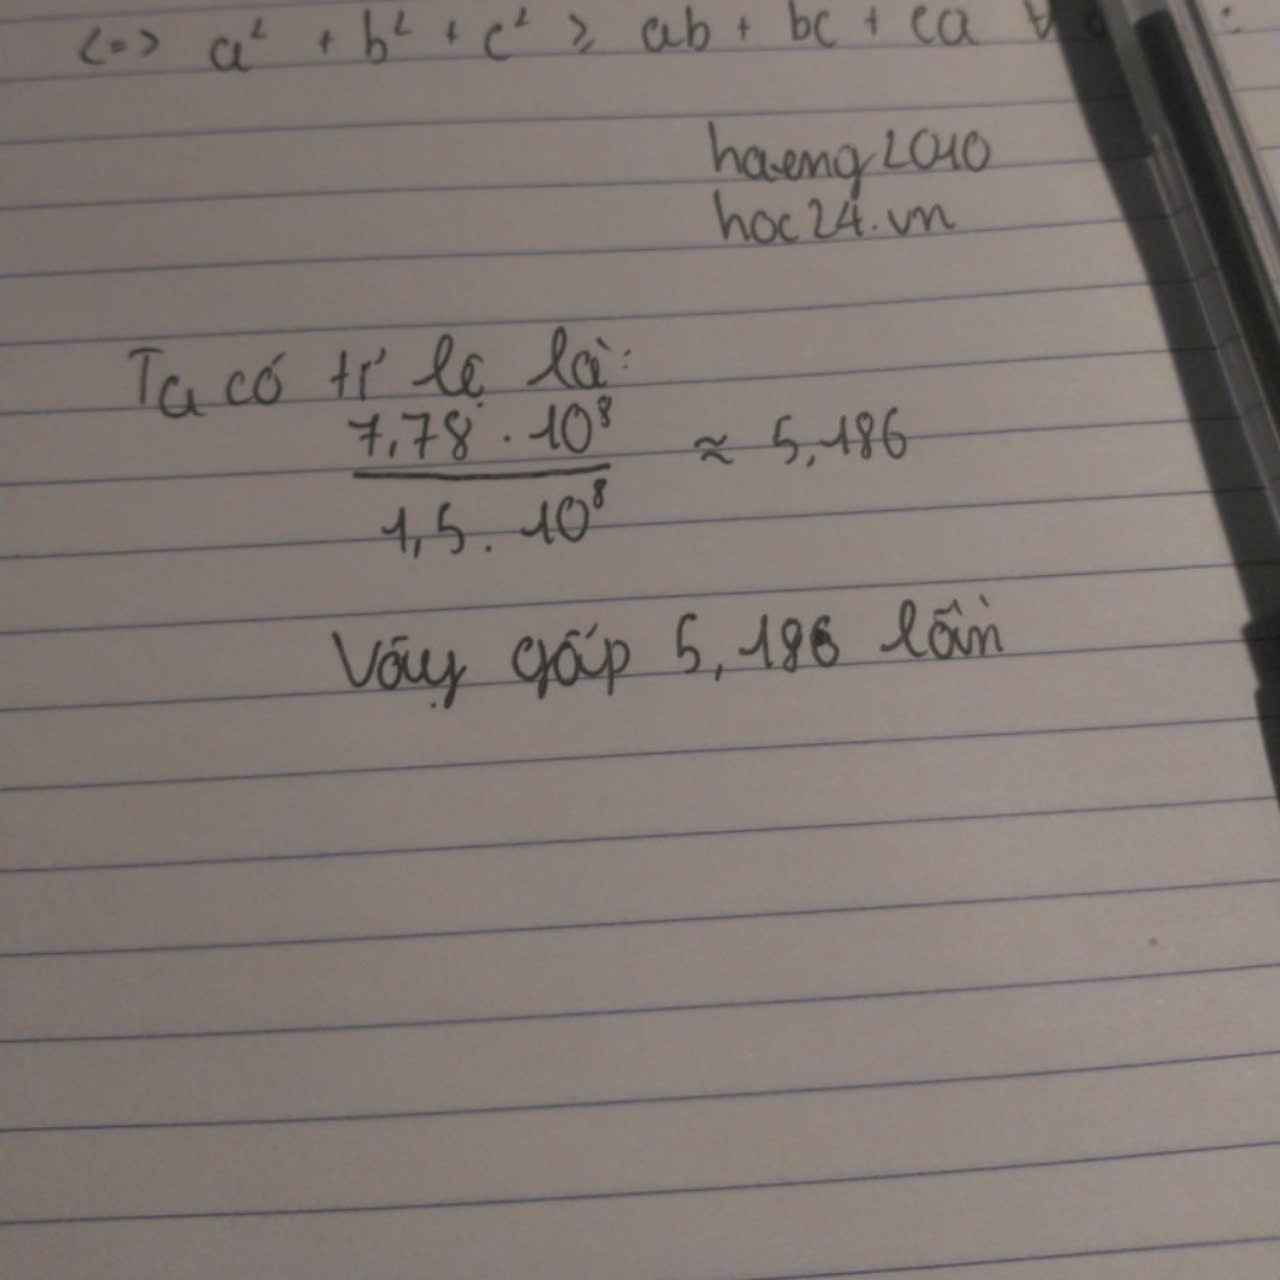 <=> a² + b² + c² ≥ ab + bc + ca ∀
haeng2010
hoc24.vn
Ta có tỉ lệ là:
7,78 . 10⁸
≈ 5,186
1,5 . 10⁸
Vậy gấp 5,186 lần